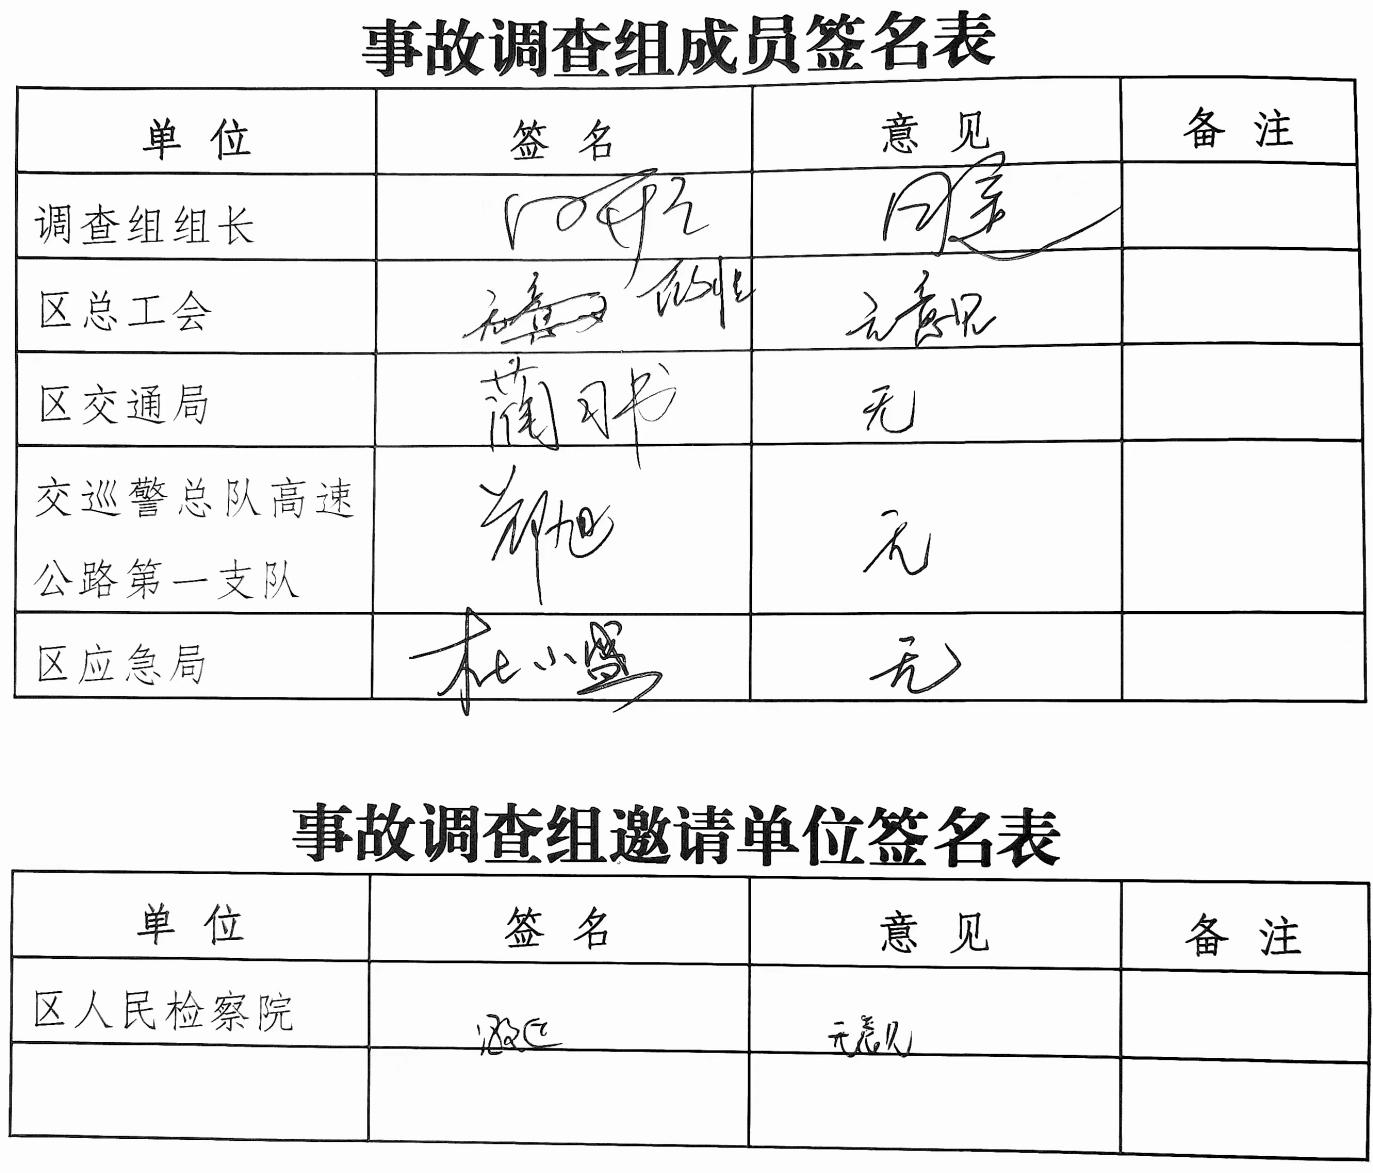 事故调查组成员签名表
单位 签名 意见 备注
调查组组长 同意
区总工会 无意见
区交通局 蔺 无
交巡警总队高速
公路第一支队 郑旭 无
区应急局 杜小 无
事故调查组邀请单位签名表
单位 签名 意见 备注
区人民检察院 无意见